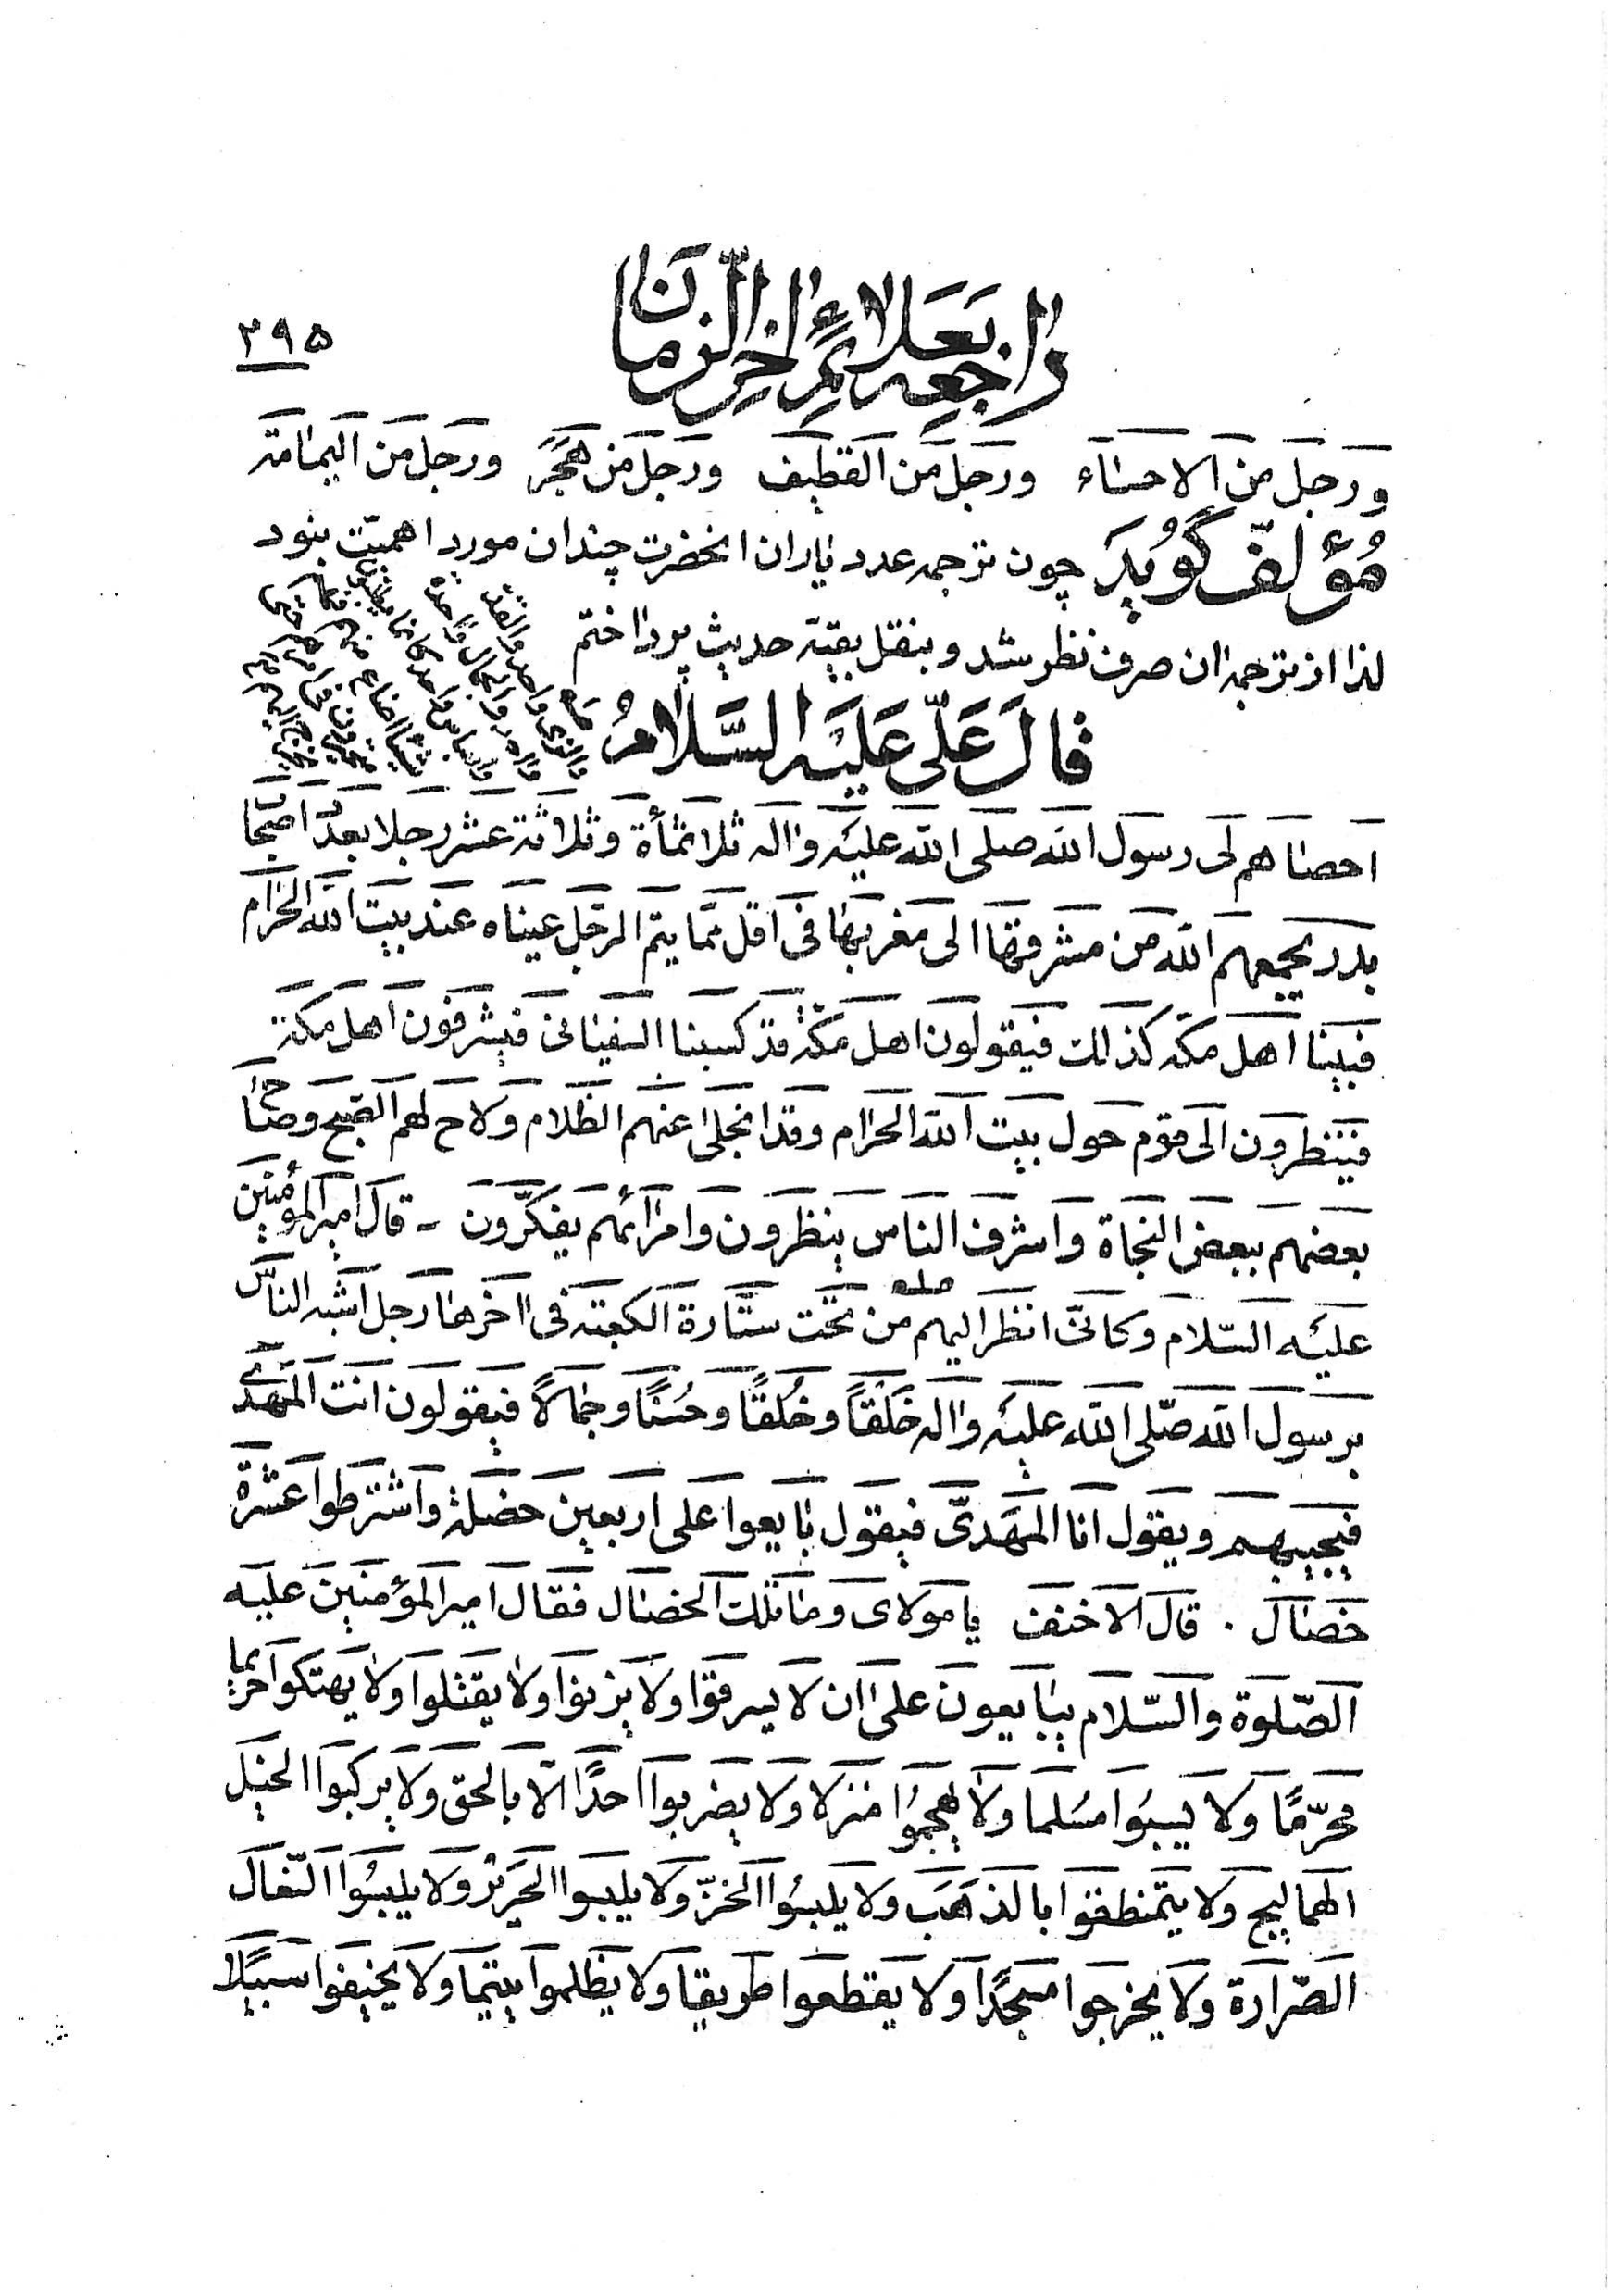 راجعه بعلائم اخر الزمان
۳۹۵
ورجل من الاحساء ورجل من القطيف ورجل من هجر ورجل من اليمامة
مؤلف گويد چون ترجمه عدد ياران انحضرت چندان مورد اهميت بنود
لذا از ترجمه ان صرف نظر شد و بنقل بقيه حديث پرداختم
قال علىّ عليه السَّلامُ
احصاهم لى رسول الله صلى الله عليه واله ثلاثمأة وثلاثة عشر رجلا بعدد اصحاب
بدر يجمعهم الله من مشرقها الى مغربها فى اقل مما يتم الرجل عيناه عند بيت الله الحرام
فبينا اهل مكه كذالك فيقولون اهل مكّة قد كسبنا السفيانى فيشرفون اهل مكة
فينظرون الى قوم حول بيت الله الحرام وقد انجلى عنهم الظلام ولاح لهم الصبح وصاح
بعضهم ببعض النجاة واشرف الناس ينظرون وامرائهم يفكّرون - قال امير المؤمنين
عليه السّلام وكانّى انظر اليهم من تحت ستّارة الكعبة فى اخرها رجل اشبه الناس
برسول الله صلّى الله عليه واله خَلْقاً وخُلقًا وحُسنًا وجمالاً فيقولون انت المهدى
فيجيبهم ويقول انا المهدىّ فيقول بايعوا على اربعين خصلة واشترطوا عشرة
خصال . قال الاحنف يا مولاى وما تلك الخصال فقال امير المؤمنين عليه
الصّلوة والسّلام يبايعون على ان لا يسرقوا ولا يزنوا ولا يقتلوا ولا يهتكوا حريما
محرّمًا ولا يسبُوا مسُلما ولا يهجمُوا منزلا ولا يضربوا احدًا الّا بالحق ولا يركبوا الخيل
الهماليج ولا يتمنطقوا بالذهب ولا يلبسُوا الخزّ ولا يلبسوا الحرير ولا يلبسُوا النّعال
الصّرارة ولا يخرجوا مسجدًا ولا يقطعوا طريقا ولا يظلموا يتيما ولا يخيفوا سبيلا